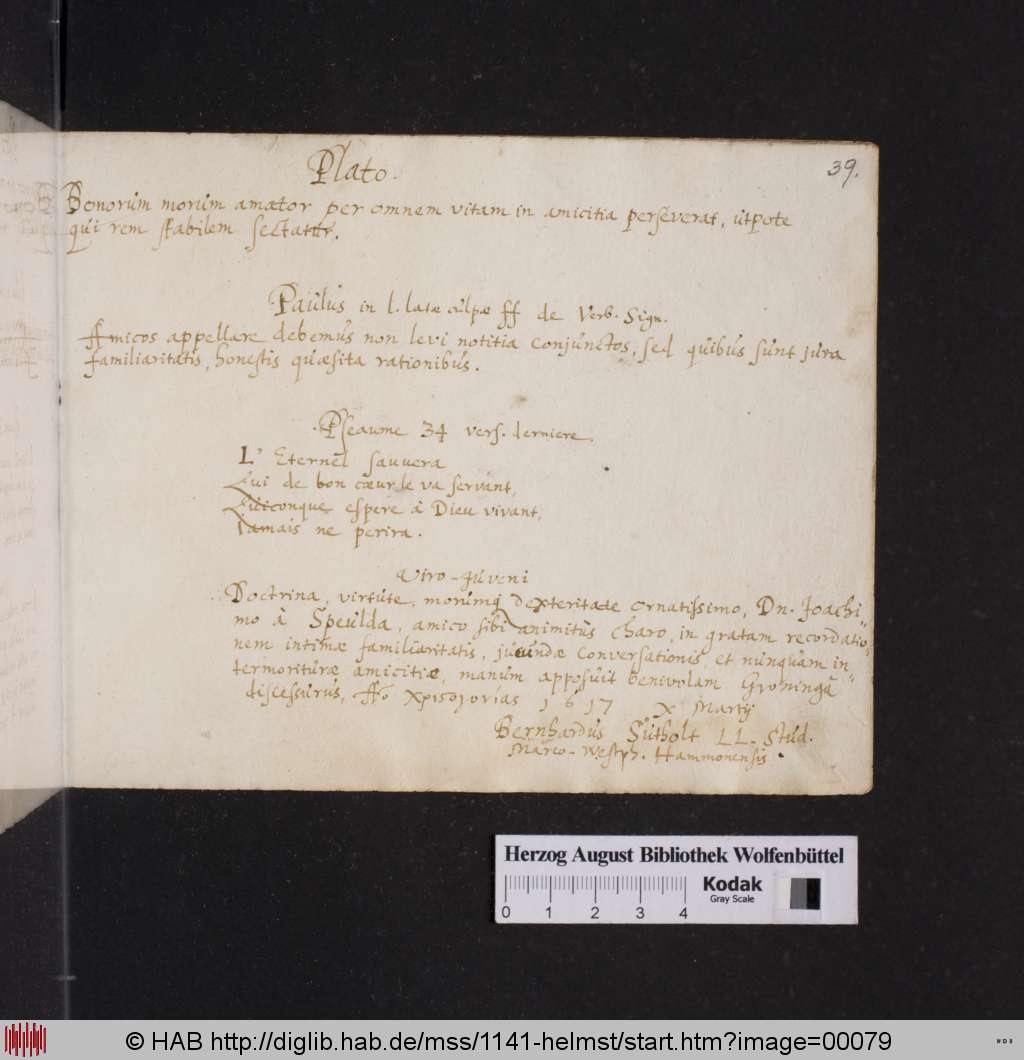 39.
Plato.
Bonorùm morùm amator per omnem vitam in amicitia perseverat, ùtpote
qùi rem stabilem sectatùr.
Paùlùs in l. latæ cùlpæ ff de Verb. Sign.
Amicos appellare debemùs non levi notitia conjùnctos, sed qùibùs sùnt jùra
familiaritatis, honestis qùæsita rationibùs.
Pseaume 34 vers. derniere.
L' Eternel sauvera
Qui de bon cœur le va servant,
Quiconque espere à Dieu vivant,
Jamais ne perira.
Viro-Jùveni
Doctrina, virtùte, morùmq dexteritate ornatissimo, Dn. Joachi=
mo à Speùlda, amico sibi animitùs charo, in gratam recordatio=
nem intimæ familiaritatis, jùcùndæ conversationis, et nùnqùam in=
termoritùræ amicitiæ, manùm apposùit benivolam Groningâ
discessùrùs, Aº Χριστογονίας 1617 X Martij
Bernhardùs Sùtholt LL. Stùd.
Marco-Westph. Hammonensis.
Herzog August Bibliothek Wolfenbüttel
Kodak
Gray Scale
0 1 2 3 4
© HAB http://diglib.hab.de/mss/1141-helmst/start.htm?image=00079